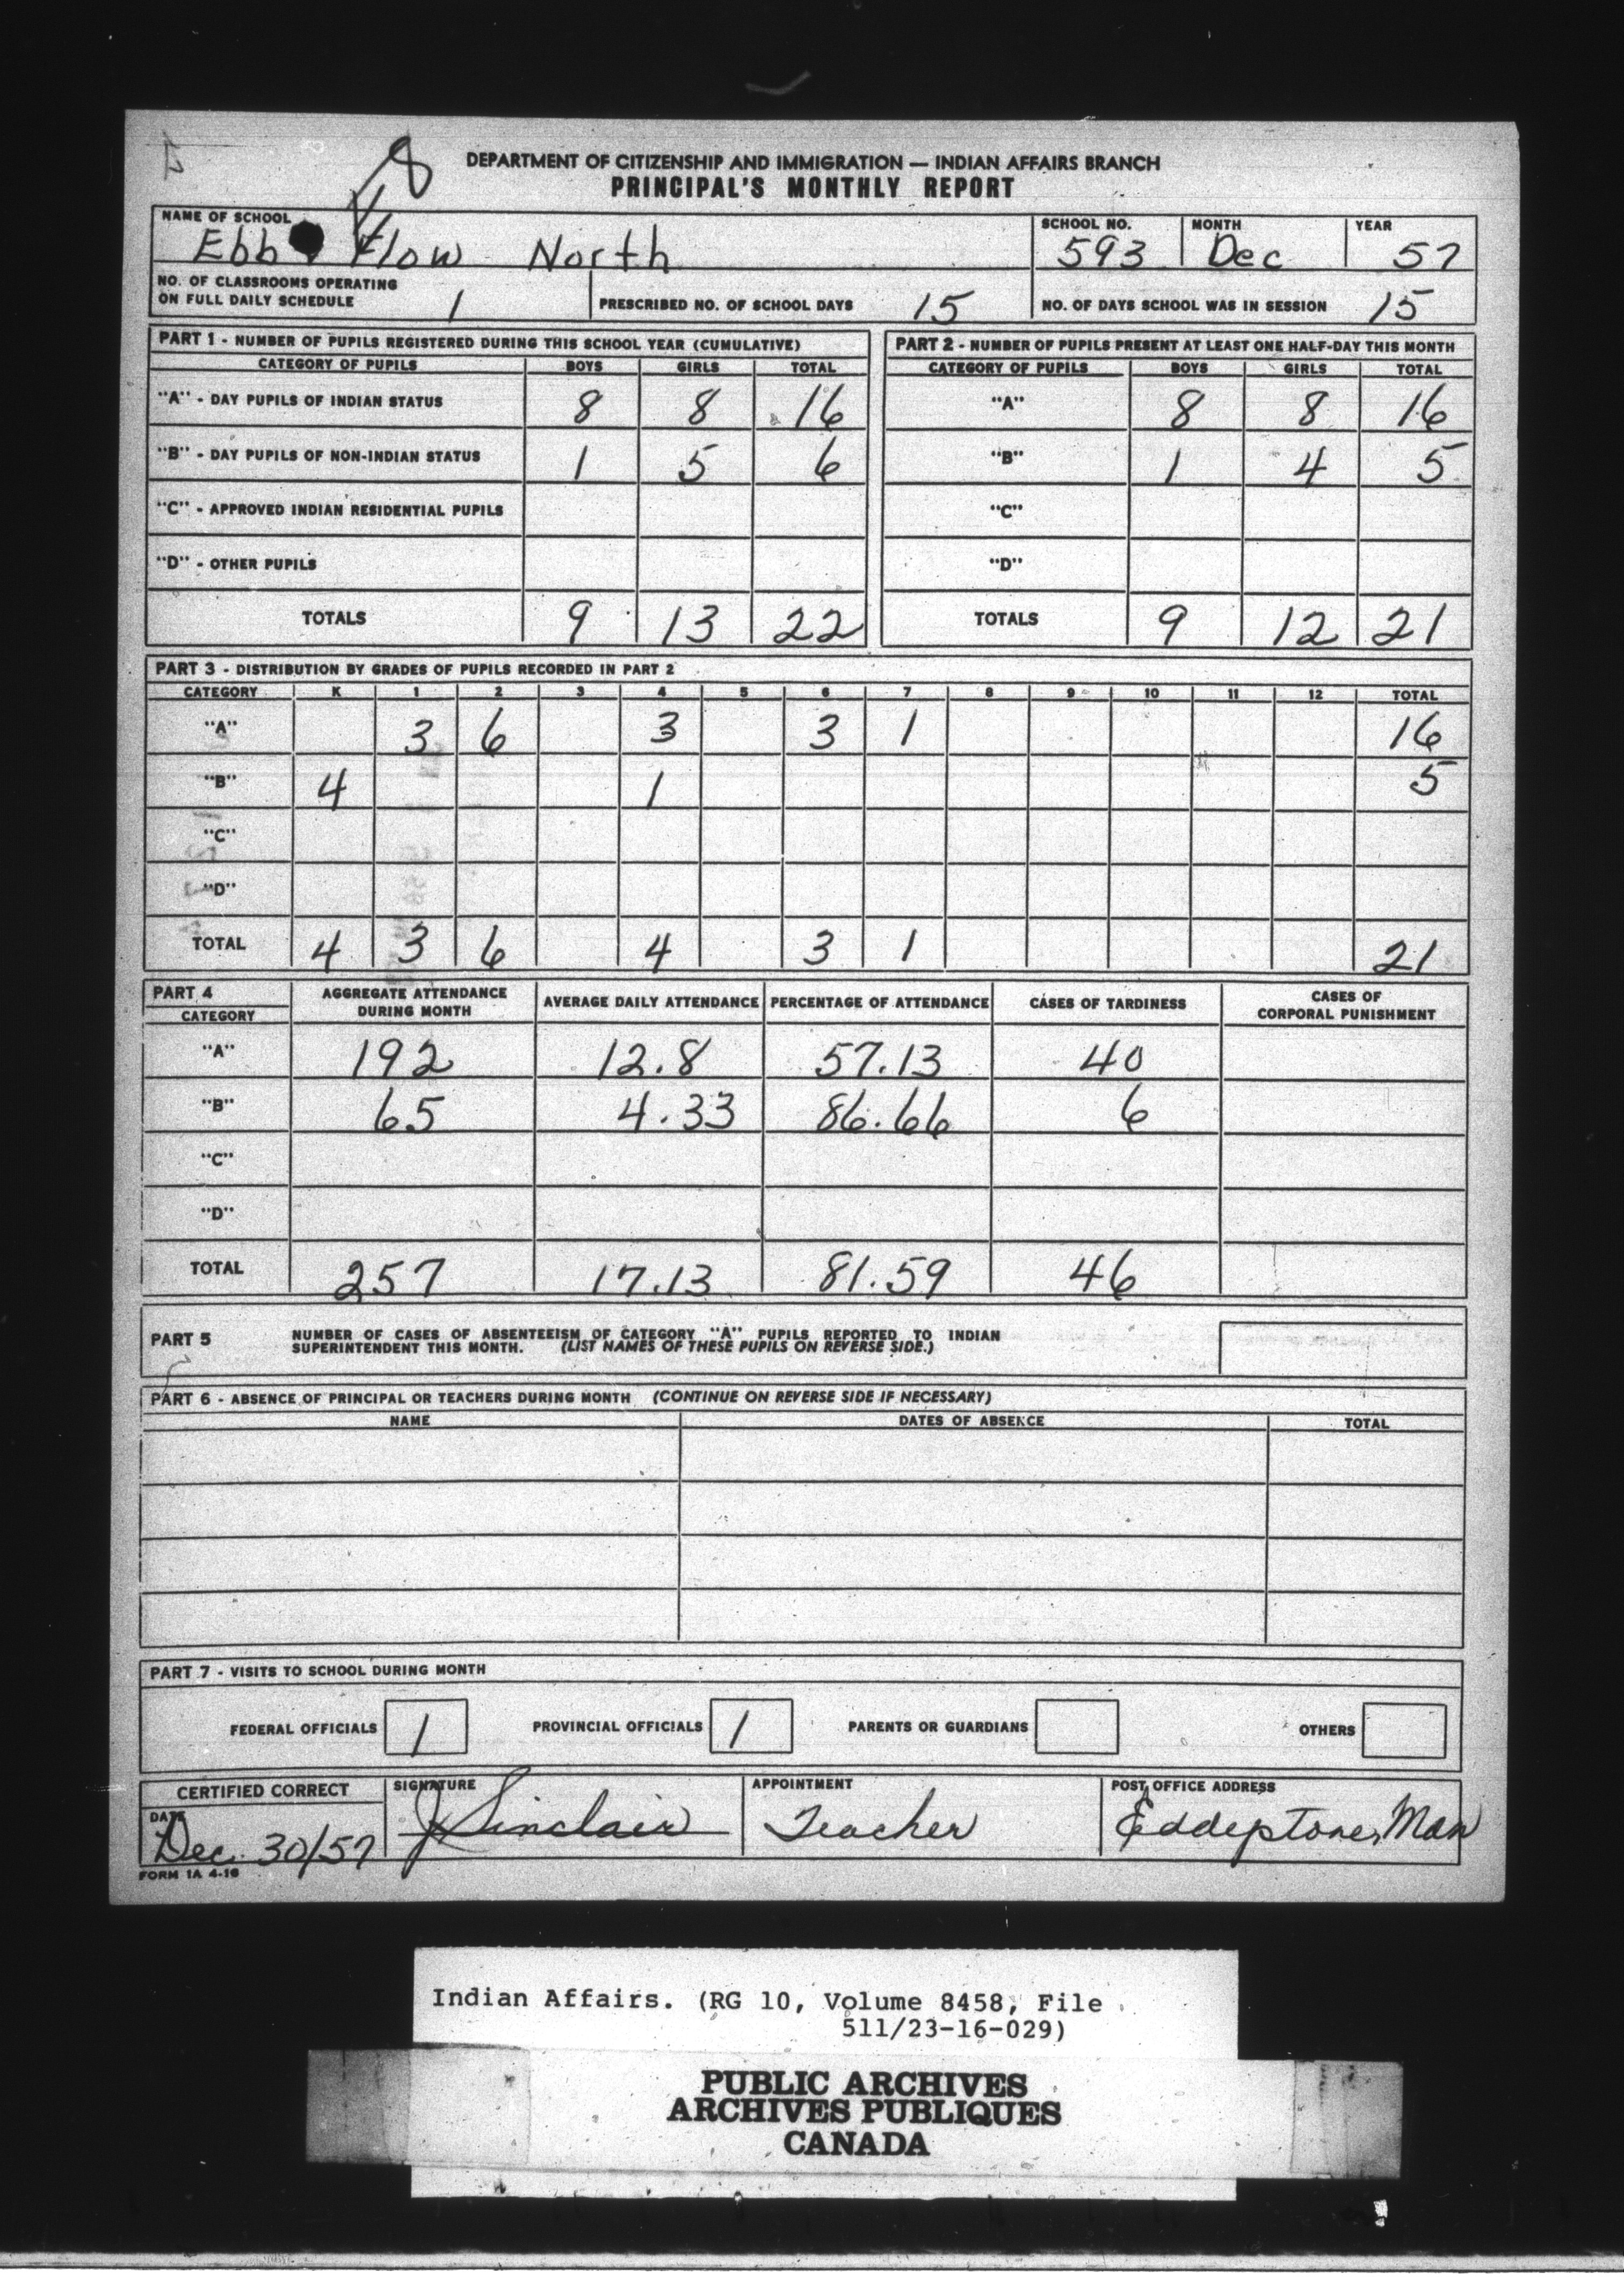 8
DEPARTMENT OF CITIZENSHIP AND IMMIGRATION — INDIAN AFFAIRS BRANCH
PRINCIPAL'S MONTHLY REPORT
NAME OF SCHOOL Ebb Flow North SCHOOL NO. 593 MONTH Dec YEAR 57
NO. OF CLASSROOMS OPERATING
ON FULL DAILY SCHEDULE 1 PRESCRIBED NO. OF SCHOOL DAYS 15 NO. OF DAYS SCHOOL WAS IN SESSION 15
PART 1 - NUMBER OF PUPILS REGISTERED DURING THIS SCHOOL YEAR (CUMULATIVE)
CATEGORY OF PUPILS BOYS GIRLS TOTAL
"A" - DAY PUPILS OF INDIAN STATUS 8 8 16
"B" - DAY PUPILS OF NON-INDIAN STATUS 1 5 6
"C" - APPROVED INDIAN RESIDENTIAL PUPILS
"D" - OTHER PUPILS
TOTALS 9 13 22
PART 2 - NUMBER OF PUPILS PRESENT AT LEAST ONE HALF-DAY THIS MONTH
CATEGORY OF PUPILS BOYS GIRLS TOTAL
"A" 8 8 16
"B" 1 4 5
"C"
"D"
TOTALS 9 12 21
PART 3 - DISTRIBUTION BY GRADES OF PUPILS RECORDED IN PART 2
CATEGORY K 1 2 3 4 5 6 7 8 9 10 11 12 TOTAL
"A" 3 6 3 3 1 16
"B" 4 1 5
"C"
"D"
TOTAL 4 3 6 4 3 1 21
PART 4
CATEGORY AGGREGATE ATTENDANCE DURING MONTH AVERAGE DAILY ATTENDANCE PERCENTAGE OF ATTENDANCE CASES OF TARDINESS CASES OF CORPORAL PUNISHMENT
"A" 192 12.8 57.13 40
"B" 65 4.33 86.66 6
"C"
"D"
TOTAL 257 17.13 81.59 46
PART 5 NUMBER OF CASES OF ABSENTEEISM OF CATEGORY "A" PUPILS REPORTED TO INDIAN
SUPERINTENDENT THIS MONTH. (LIST NAMES OF THESE PUPILS ON REVERSE SIDE.)
PART 6 - ABSENCE OF PRINCIPAL OR TEACHERS DURING MONTH (CONTINUE ON REVERSE SIDE IF NECESSARY)
NAME DATES OF ABSENCE TOTAL
PART 7 - VISITS TO SCHOOL DURING MONTH
FEDERAL OFFICIALS 1 PROVINCIAL OFFICIALS 1 PARENTS OR GUARDIANS OTHERS
CERTIFIED CORRECT SIGNATURE APPOINTMENT POST OFFICE ADDRESS
DATE Dec. 30/57 J Sinclair Teacher Eddystone, Man
FORM 1A 4-16
Indian Affairs. (RG 10, Volume 8458, File
511/23-16-029)
PUBLIC ARCHIVES
ARCHIVES PUBLIQUES
CANADA